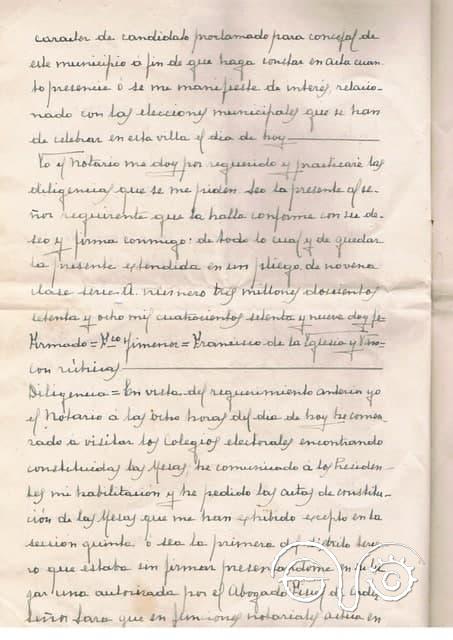 caracter de candidato proclamado para concejal de
este municipio á fin de que haga constar en acta cuan
to presencie ó se me manifieste de interés, relacio-
nado con las elecciones municipales que se han
de celebrar en esta villa el dia de hoy
Yo el Notario me doy por requerido y practicaré las
diligencias que se me piden. Leo la presente al se-
ñor requirente que la halla conforme con su de-
seo y firma conmigo: de todo lo cual y de quedar
la presente extendida en un pliego de novena
clase serie A. número tres millones doscientos
setenta y ocho mil cuatrocientos setenta y nueve doy fe
Firmado = Fco Jimenez = Francisco de la Iglesia y
con rúbricas
Diligencia = En vista del requerimiento anterior yo
el Notario á las ocho horas del dia de hoy he comen-
zado á visitar los Colegios electorales encontrando
constituidas las Mesas, he comunicado á los Presiden-
tes mi habilitación y he pedido las actas de constitu-
ción de las Mesas que me han exhibido excepto en la
sección quinta, ó sea la primera del distrito terce
ro que estaba sin firmar presentandome en su lu
gar una autorizada por el Abogado Fiscal
señor Lara que en funciones notariales actua en